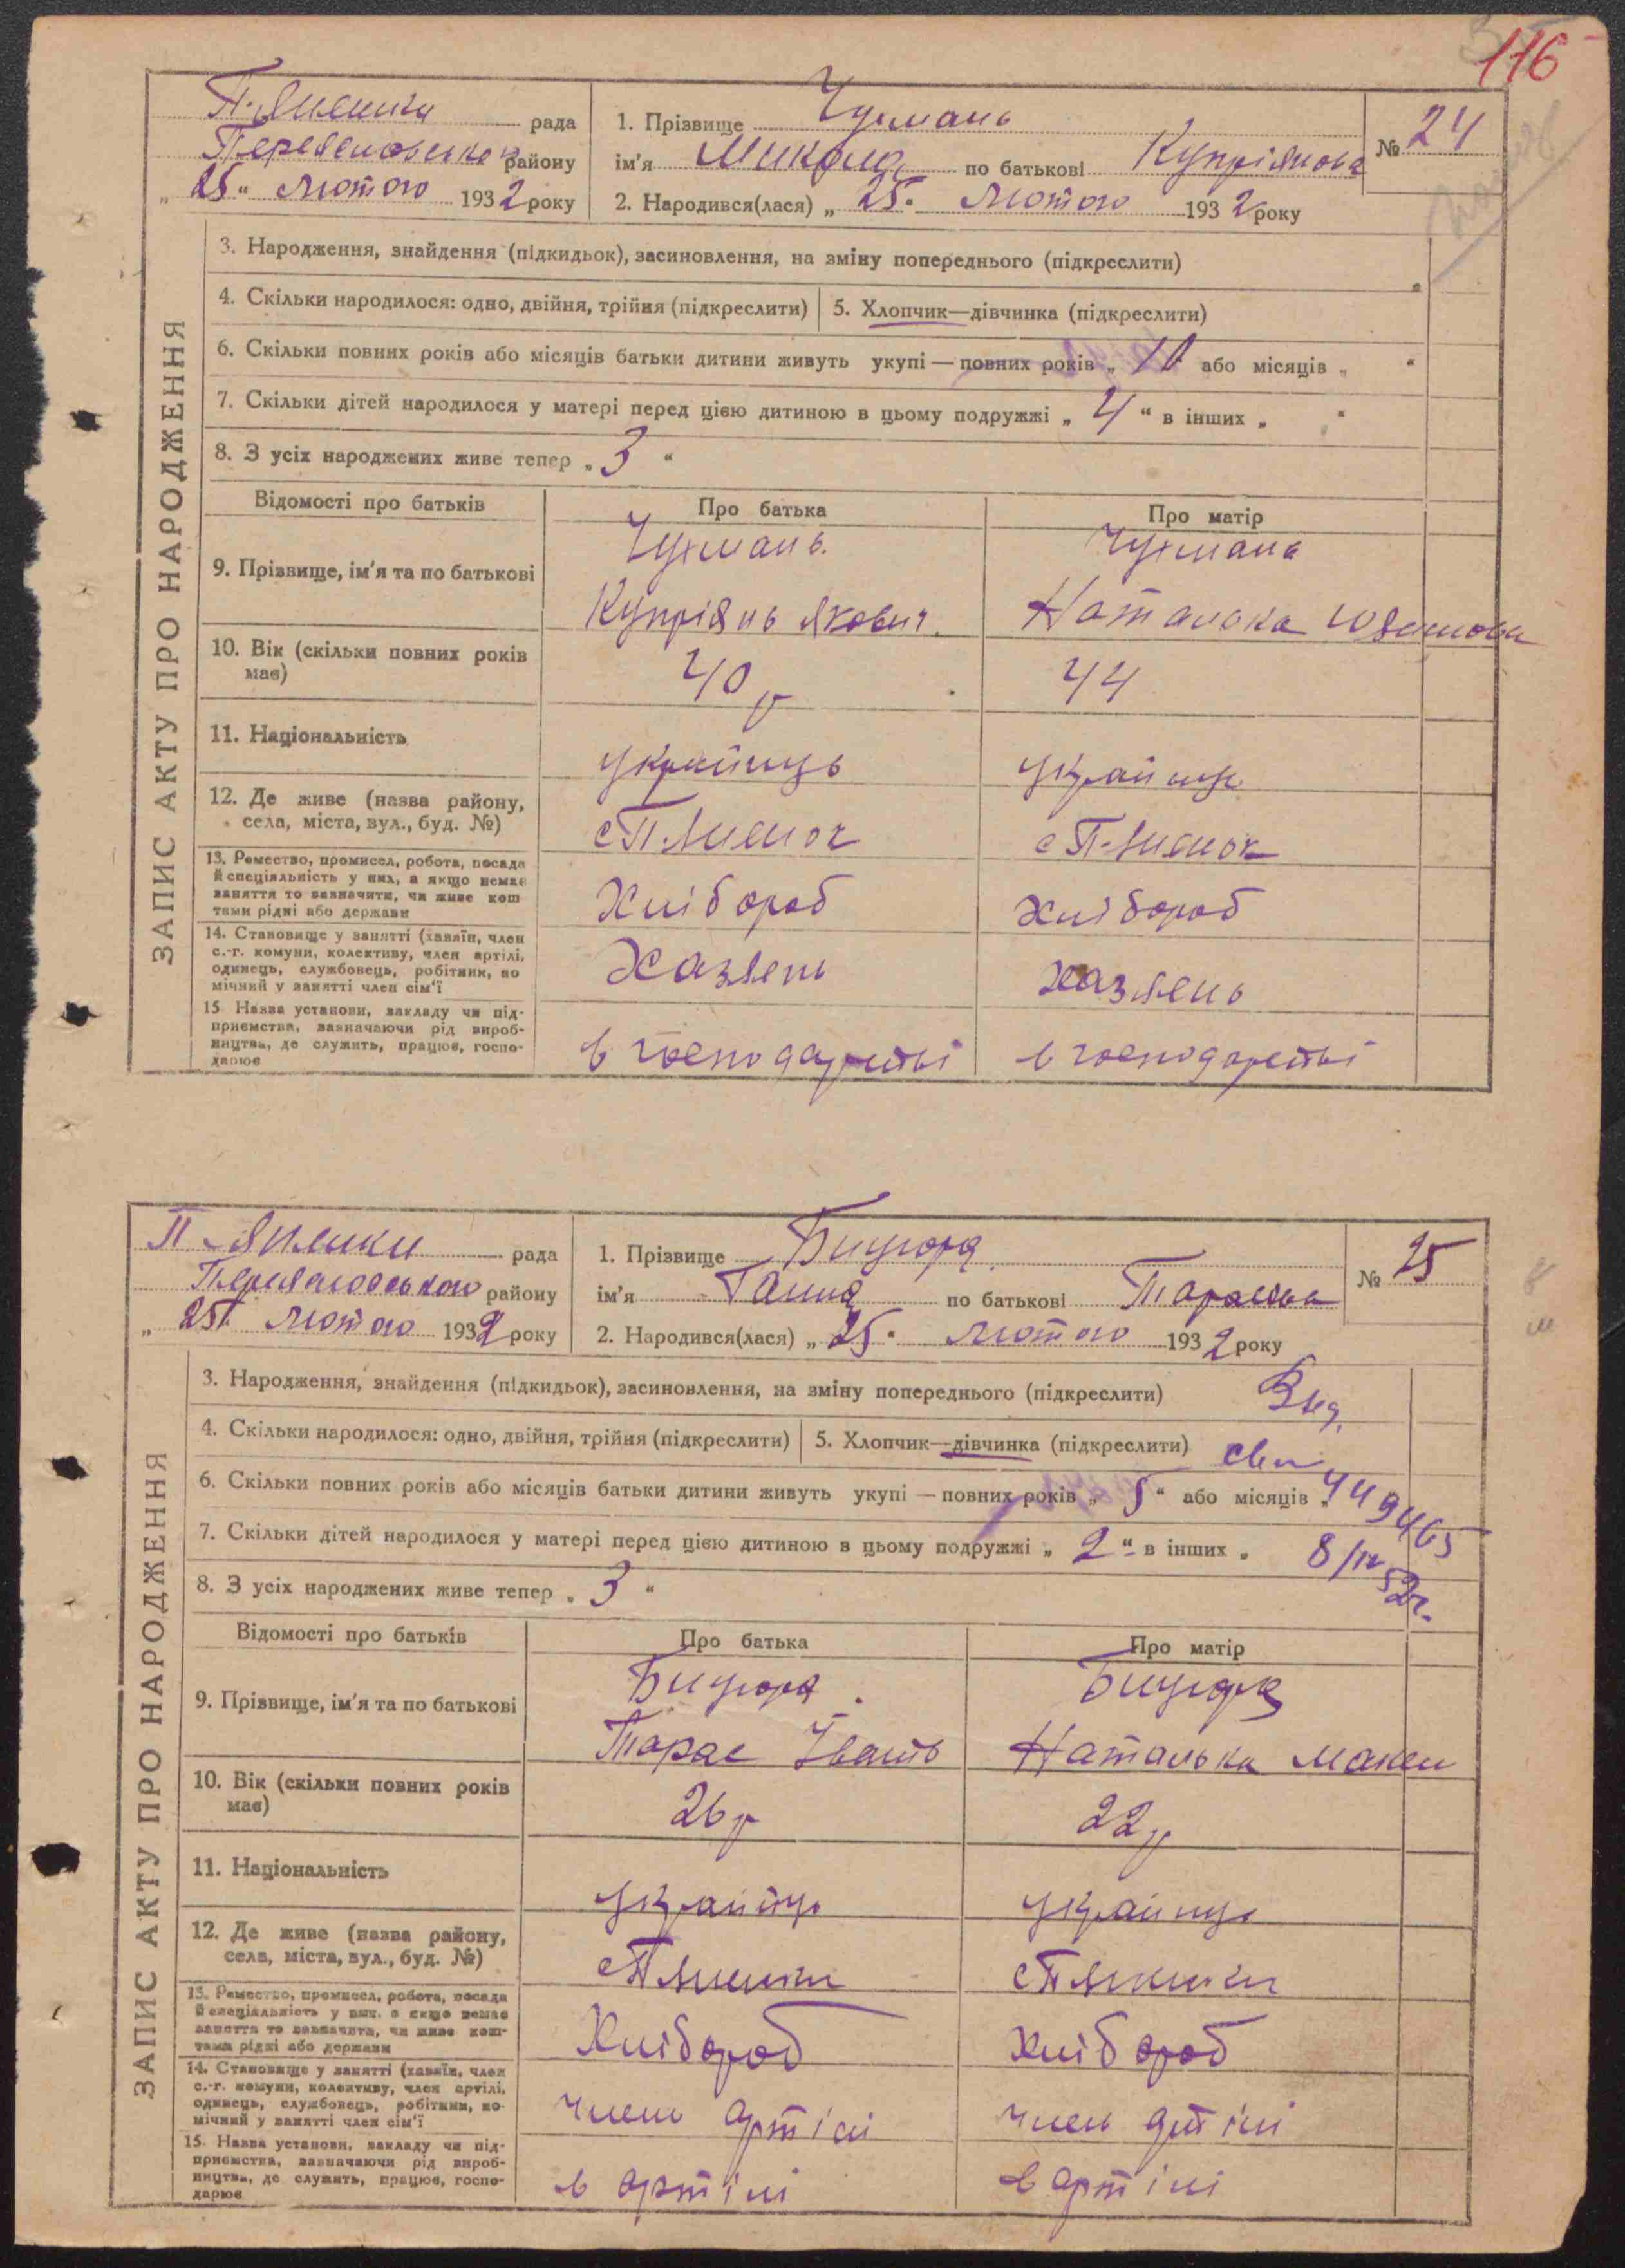 116
рада
району
25 " Лютого 1932 року
1. Прізвище Чухмань
ім'я Микола по батькові Купріянова
2. Народився(лася) „ 25 " Лютого 1932 року
№ 24
ЗАПИС АКТУ ПРО НАРОДЖЕННЯ
3. Народження, знайдення (підкидьок), засиновлення, на зміну попереднього (підкреслити)
4. Скільки народилося: одно, двійня, трійня (підкреслити) 5. Хлопчик—дівчинка (підкреслити)
6. Скільки повних років або місяців батьки дитини живуть укупі — повних років „ 10 або місяців „ "
7. Скільки дітей народилося у матері перед цією дитиною в цьому подружжі „ 4 " в інших „ "
8. З усіх народжених живе тепер „ 3 "
Відомості про батьків Про батька Про матір
9. Прізвище, ім'я та по батькові
Чухмань Чухмань
Купріянь Якович Наталька
10. Вік (скільки повних років має)
40 р 44
11. Національність
українць українць
12. Де живе (назва району, села, міста, вул., буд. №)
13. Ремество, промисел, робота, посада
й спеціяльність у них, а якщо немає
заняття то зазначити, чи живе кош
тами рідні або держави
Хлібороб хлібороб
14. Становище у занятті (хазяїн, член
с.-г. комуни, колективу, член артілі,
одинець, службовець, робітник, по
мічний у занятті член сім'ї
Хазяень хазяень
15 Назва установи, закладу чи під-
приємства, зазначаючи рід вироб-
ництва, де служить, працює, госпо-
дарює
в господарстві в господарстві
П-янилки рада
району
25 " Лютого 1932 року
1. Прізвище
ім'я Ганна по батькові Тарасова
2. Народився(лася) „ 25 " Лютого 1932 року
№ 25
ЗАПИС АКТУ ПРО НАРОДЖЕННЯ
3. Народження, знайдення (підкидьок), засиновлення, на зміну попереднього (підкреслити) Выд.
4. Скільки народилося: одно, двійня, трійня (підкреслити) 5. Хлопчик—дівчинка (підкреслити) св
6. Скільки повних років або місяців батьки дитини живуть укупі — повних років „ 5 " або місяців „
449465
7. Скільки дітей народилося у матері перед цією дитиною в цьому подружжі „ 2 " в інших „ 8/IV 52г.
8. З усіх народжених живе тепер „ 3 "
Відомості про батьків Про батька Про матір
9. Прізвище, ім'я та по батькові
Тарас Івань Наталька
10. Вік (скільки повних років має)
26 р 22 р
11. Національність
українць українць
12. Де живе (назва району, села, міста, вул., буд. №)
13. Ремество, промисел, робота, посада
й спеціяльність у них, а якщо немає
заняття то зазначити, чи живе кош-
тами рідні або держави
Хлібороб хлібороб
14. Становище у занятті (хазяїн, член
с.-г. комуни, колективу, член артілі,
одинець, службовець, робітник, по-
мічний у занятті член сім'ї
член артілі член артілі
15. Назва установи, закладу чи під-
приємства, зазначаючи рід вироб-
ництва, де служить, працює, госпо-
дарює
в артілі в артілі